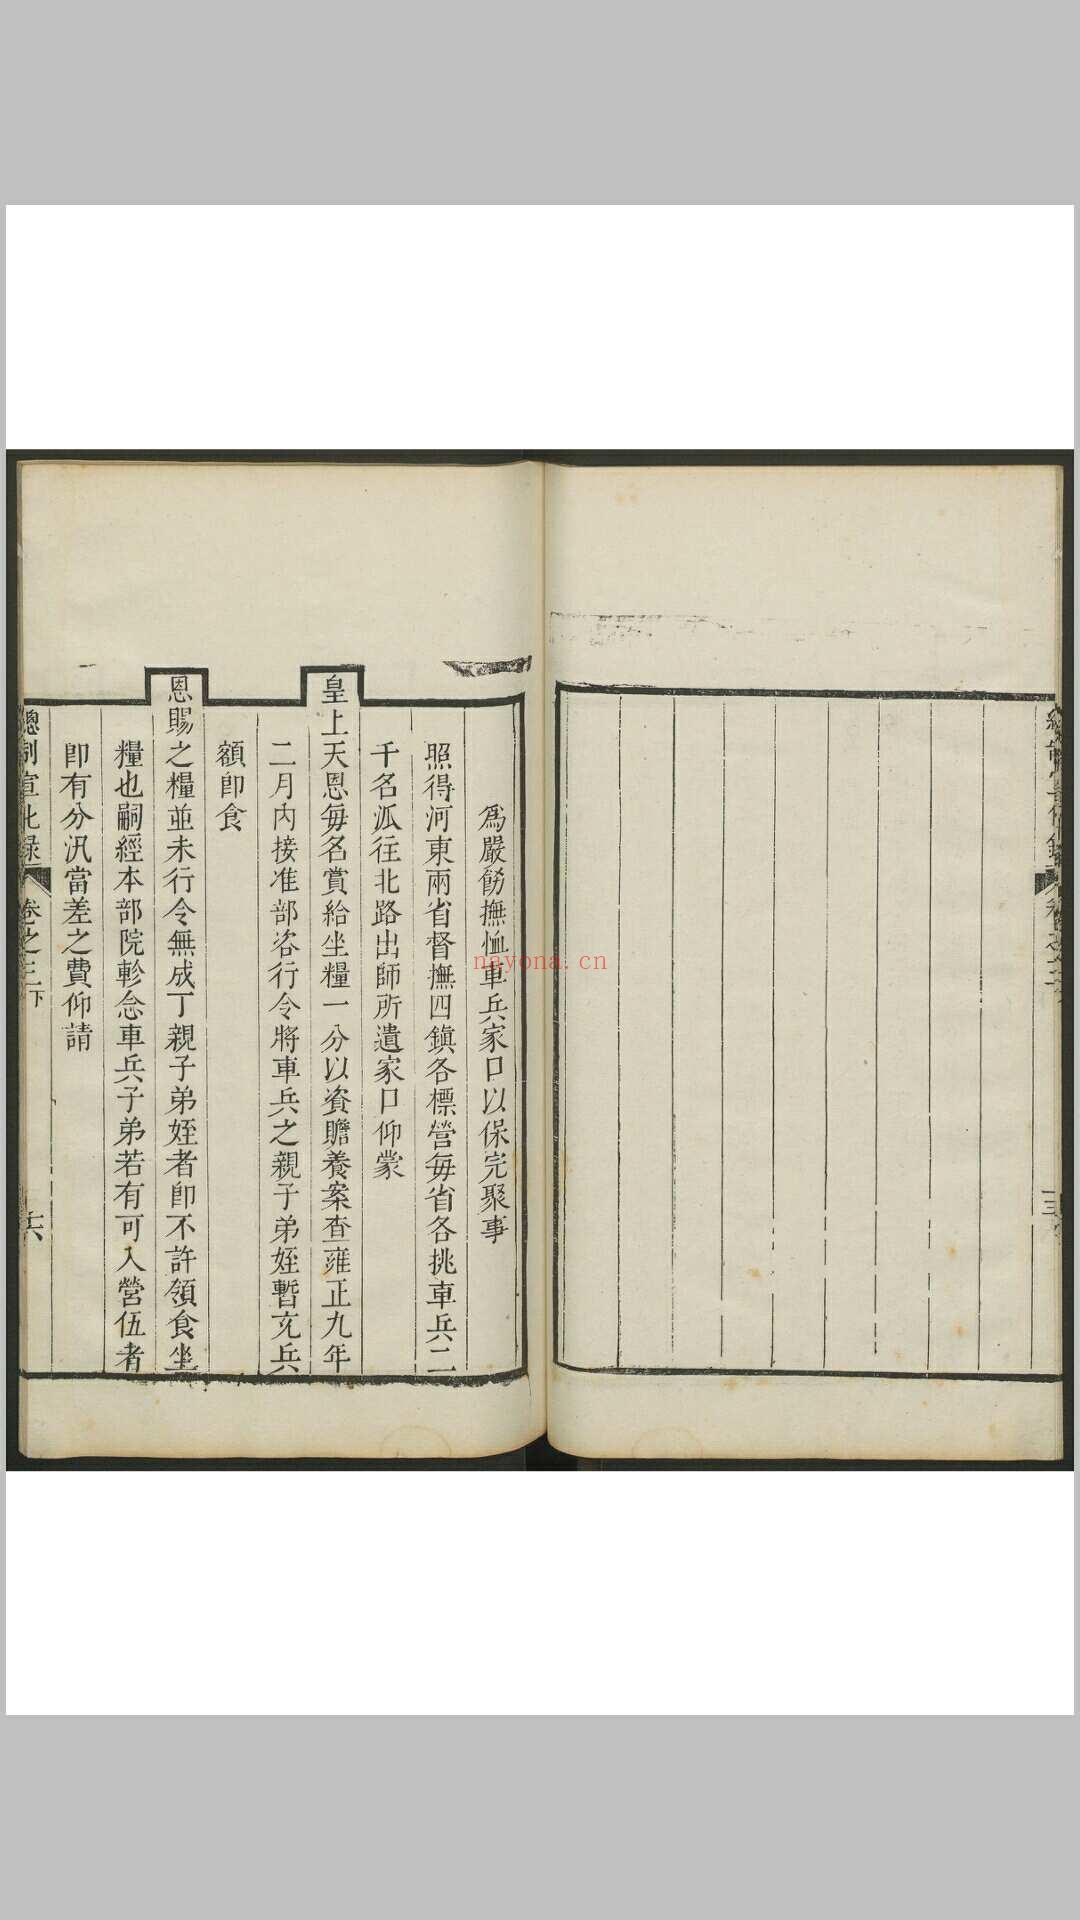 為嚴飭撫恤車兵家口以保完聚事
照得河東兩省督撫四鎮各標營每省各挑車兵二
千名派往北路出師所遺家口仰蒙
皇上天恩每名賞給坐糧一分以資贍養案查雍正九年
二月內接准部咨行令將車兵之親子弟姪暫充兵
額即食
恩賜之糧並未行令無成丁親子弟姪者即不許領食坐
糧也嗣經本部院軫念車兵子弟若有可入營伍者
即有分汛當差之費仰請
總制宣化錄 卷之三下 六
nayona.cn